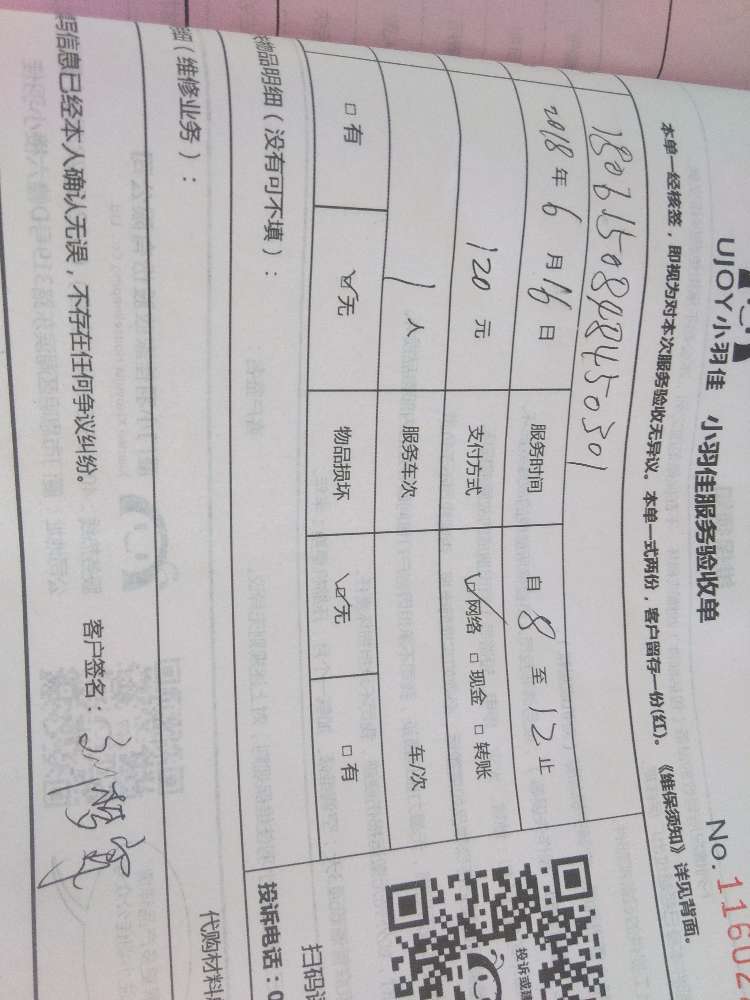 UJOY小羽佳 小羽佳服务验收单
No. 11602
本单一经核签，即视为对本次服务验收无异议。本单一式两份，客户留存一份(红)。《维保须知》详见背面。
2018年6月16日 服务时间 自8至12止
120元 支付方式 ☑网络 □现金 □转账
1人 服务车次 车/次
□有 ☑无 物品损坏 ☑无 □有
物品明细（没有可不填）：
扫码
投诉或
投诉电话：0
（维修业务）：
代购材料
信息已经本人确认无误，不存在任何争议纠纷。
客户签名：